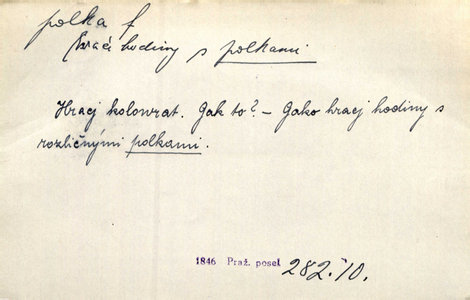 polka f
hrací hodiny s polkami
Hracj kolowrat. Gak to? – Gako hracj hodiny s
rozličnými polkami.
1846 Praž. posel 282.10.